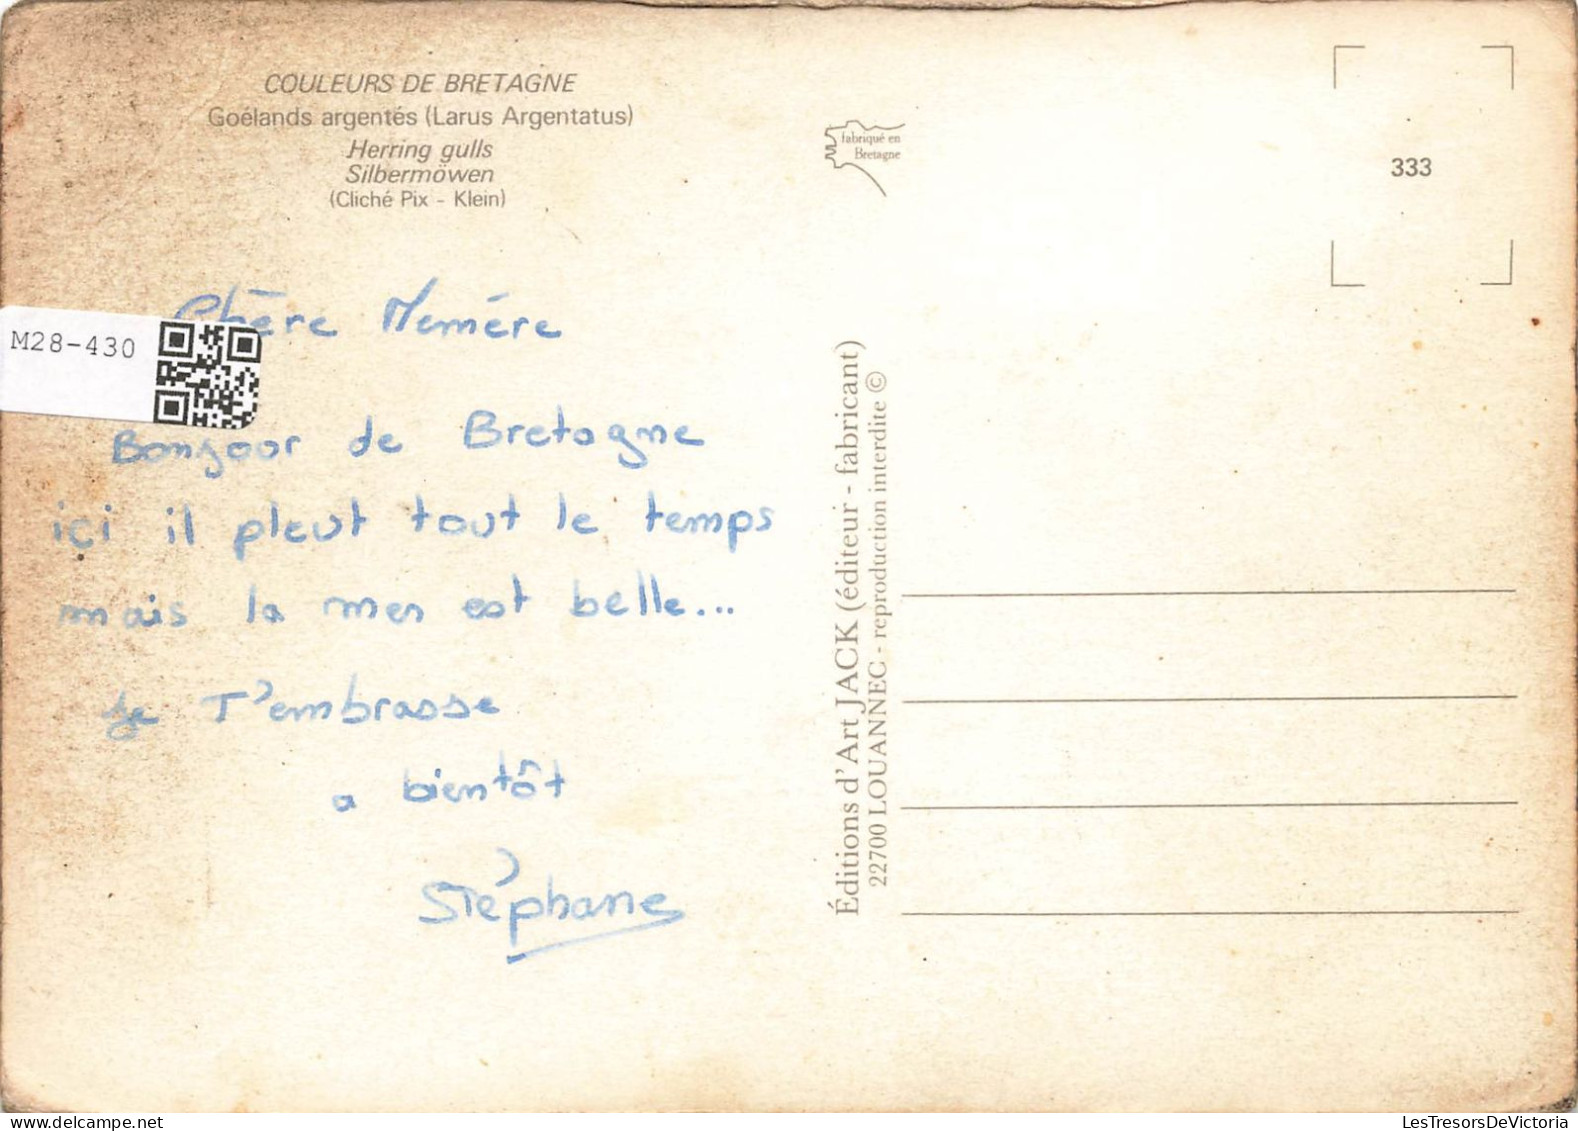 COULEURS DE BRETAGNE
Goélands argentés (Larus Argentatus)
Herring gulls
Silbermöwen
(Cliché Pix - Klein)
fabriqué en
Bretagne
333
M28-430
Chère Memére
Bonjour de Bretagne
ici il pleut tout le temps
mais la mer est belle...
Je T'embrasse
a bientôt
Stéphane
Éditions d'Art JACK (éditeur - fabricant)
22700 LOUANNEC - reproduction interdite ©
LesTresorsDeVictoria